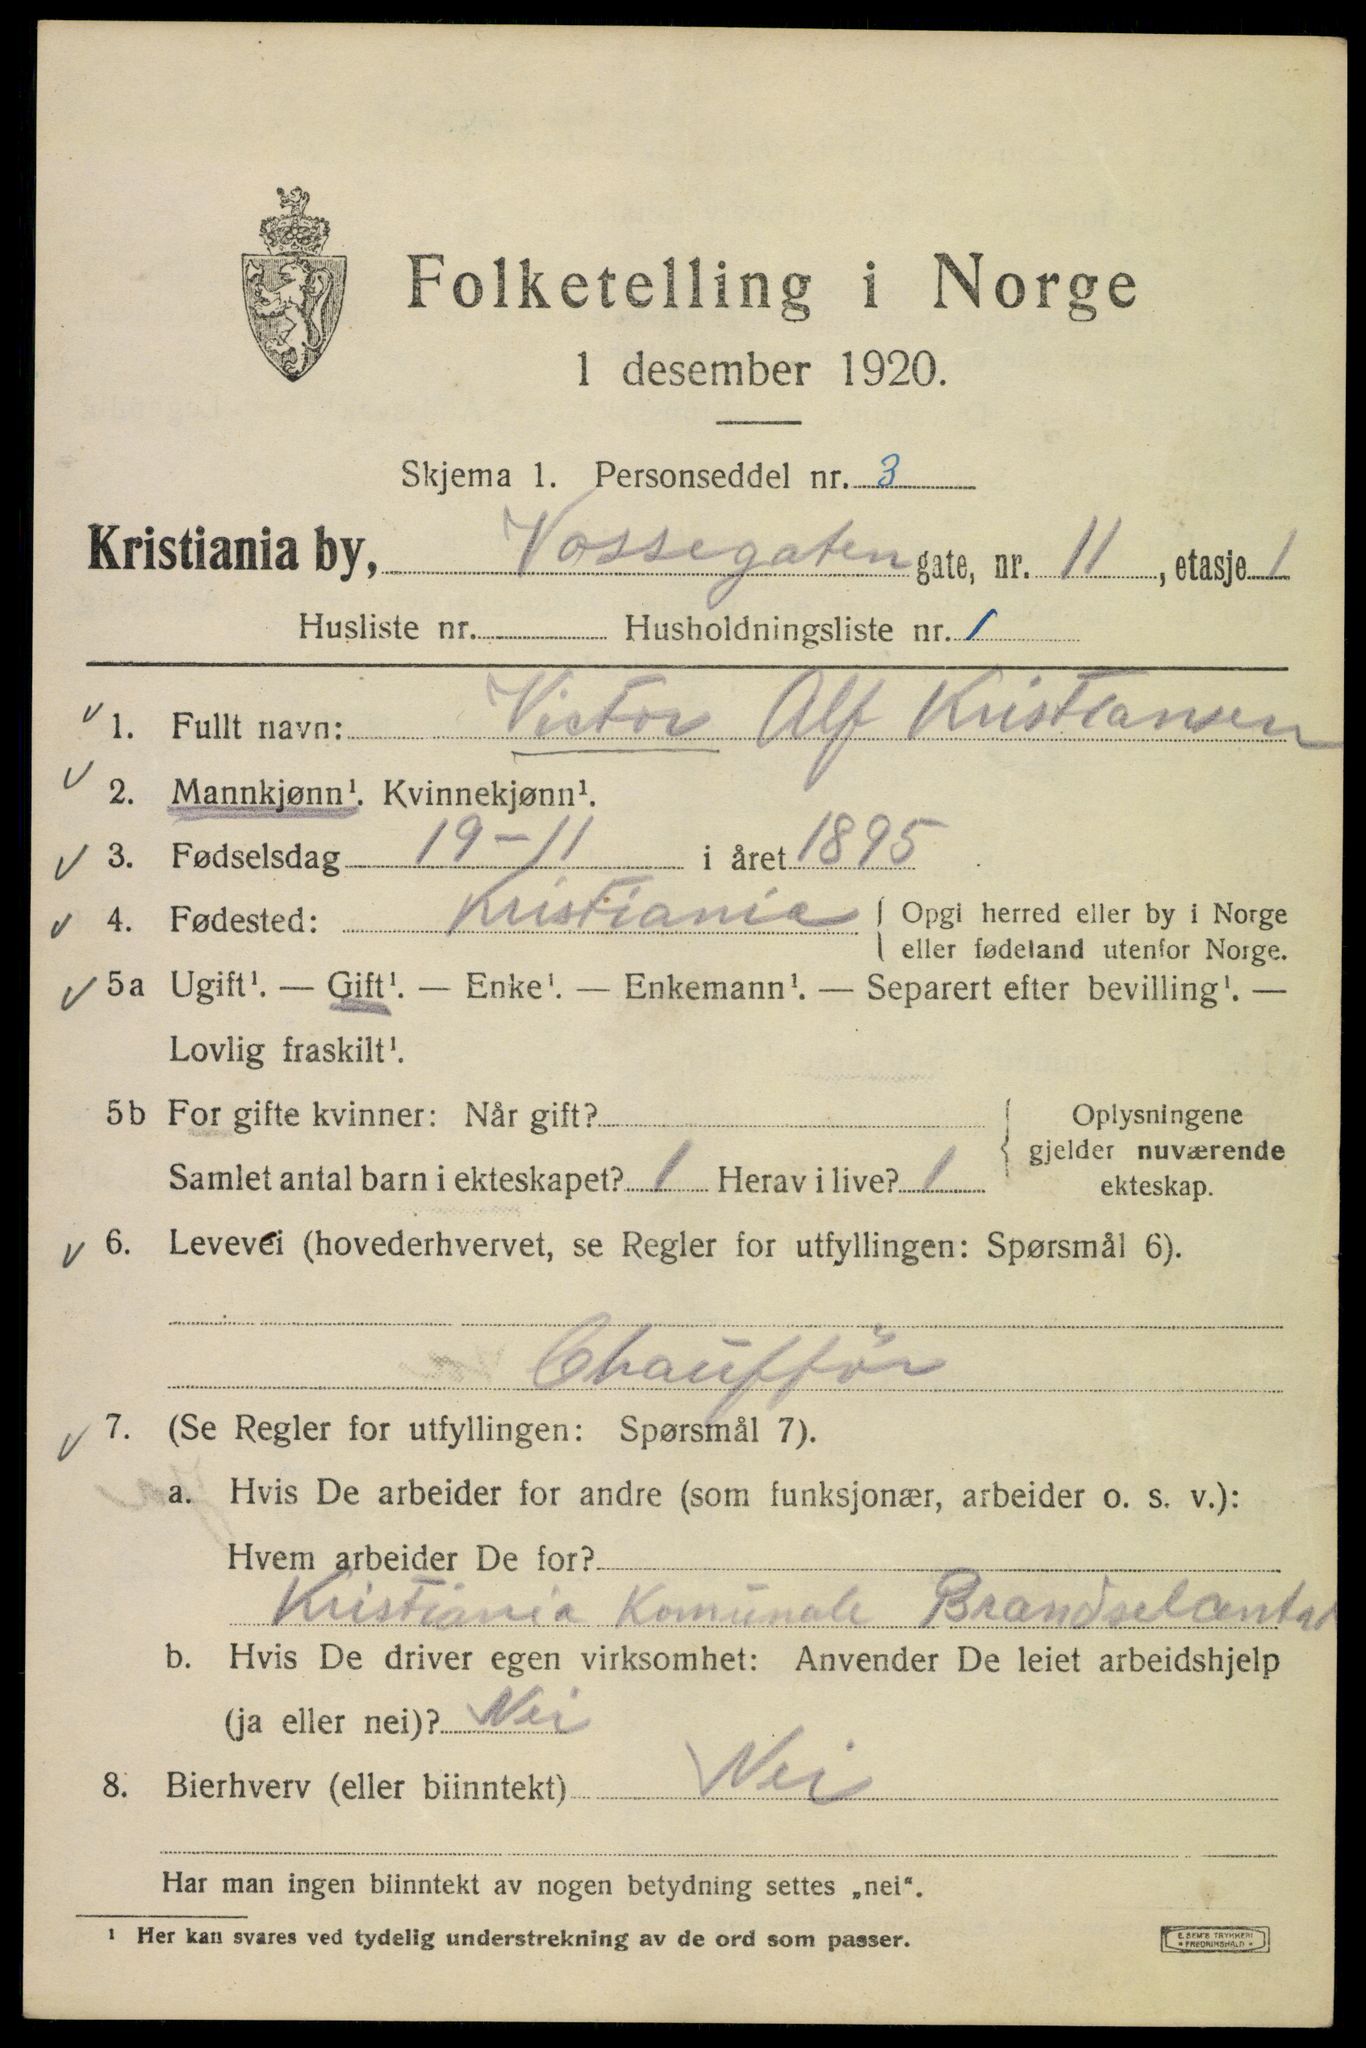 Folketelling i Norge
1 desember 1920.
Skjema 1. Personseddel nr. 3
Kristiania by, Vossegaten gate, nr. 11, etasje 1
Husliste nr. Husholdningsliste nr. 1
1. Fullt navn: Victor Alf Kristiansen
2. Mannkjønn¹. Kvinnekjønn¹.
3. Fødselsdag 19-11 i året 1895
4. Fødested: Kristiania { Opgi herred eller by i Norge
eller fødeland utenfor Norge.
5a Ugift¹. — Gift¹. — Enke¹. — Enkemann¹. — Separert efter bevilling¹. —
Lovlig fraskilt¹.
5b For gifte kvinner: Når gift? { Oplysningene
gjelder nuværende
Samlet antal barn i ekteskapet? 1 Herav i live? 1 ekteskap.
6. Levevei (hovederhvervet, se Regler for utfyllingen: Spørsmål 6).
Chaufför
7. (Se Regler for utfyllingen: Spørsmål 7).
a. Hvis De arbeider for andre (som funksjonær, arbeider o. s. v.):
Hvem arbeider De for?
Kristiania Komunale
b. Hvis De driver egen virksomhet: Anvender De leiet arbeidshjelp
(ja eller nei)? Nei
8. Bierhverv (eller biinntekt) Nei
Har man ingen biinntekt av nogen betydning settes „nei".
¹ Her kan svares ved tydelig understrekning av de ord som passer.
E. SEM'S TRYKKERI
* FREDRIKSHALD *